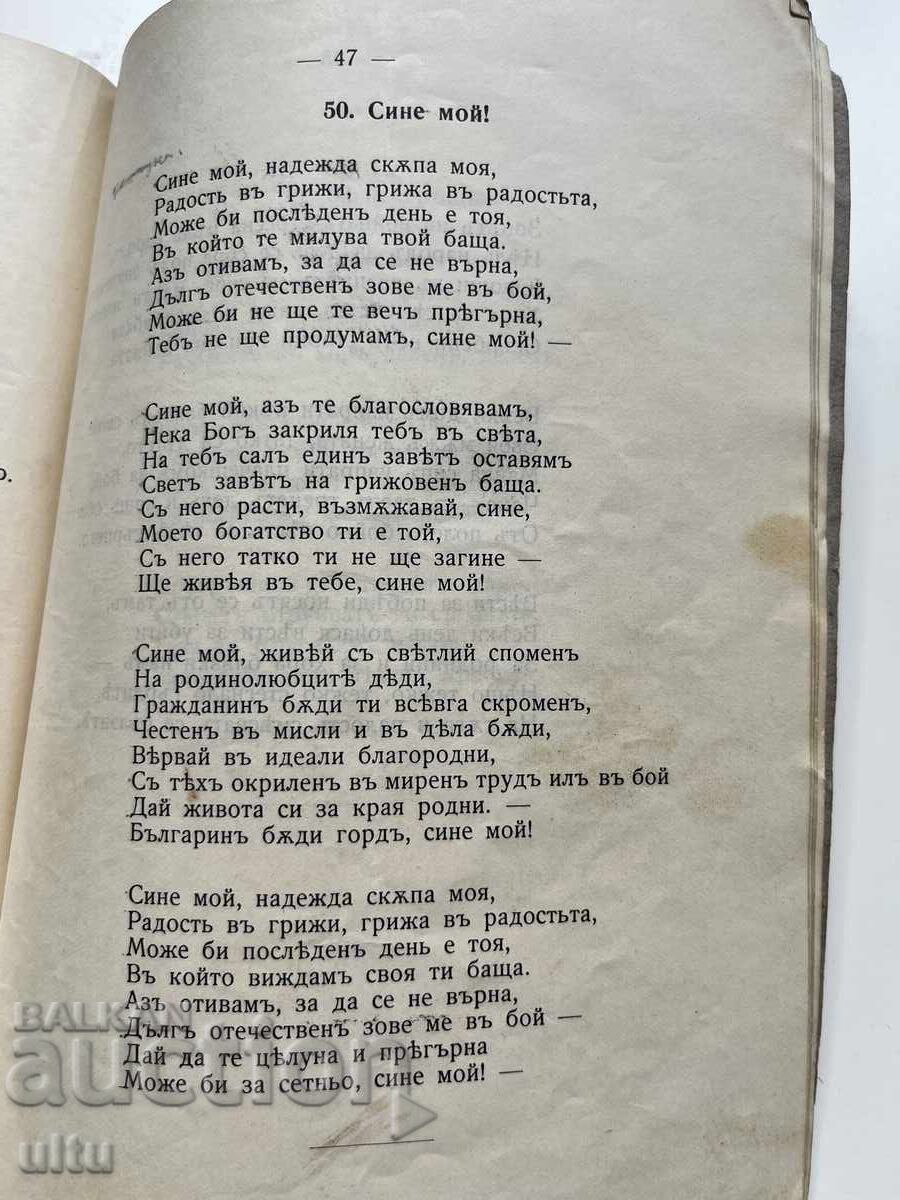 — 47 —
50. Сине мой!
Сине мой, надежда скѫпа моя,
Радость въ грижи, грижа въ радостьта,
Може би послѣденъ день е тоя,
Въ който те милува твой баща.
Азъ отивамъ, за да се не върна,
Дългъ отечественъ зове ме въ бой,
Може би не ще те вечъ прѣгърна,
Тебъ не ще продумамъ, сине мой! —
Сине мой, азъ те благословявамъ,
Нека Богъ закриля тебъ въ свѣта,
На тебъ салъ единъ завѣтъ оставямъ
Светъ завѣтъ на грижовенъ баща.
Съ него расти, възмѫжавай, сине,
Моето богатство ти е той,
Съ него татко ти не ще загине —
Ще живѣя въ тебе, сине мой!
Сине мой, живѣй съ свѣтлий споменъ
На родинолюбцитѣ дѣди,
Гражданинъ бѫди ти всѣвга скроменъ,
Честенъ въ мисли и въ дѣла бѫди,
Вѣрвай въ идеали благородни,
Съ тѣхъ окриленъ въ миренъ трудъ илъ въ бой
Дай живота си за края родни. —
Българинъ бѫди гордъ, сине мой!
Сине мой, надежда скѫпа моя,
Радость въ грижи, грижа въ радостьта,
Може би послѣденъ день е тоя,
Въ който виждамъ своя ти баща.
Азъ отивамъ, за да се не върна,
Дългъ отечественъ зове ме въ бой —
Дай да те цѣлуна и прѣгърна
Може би за сетньо, сине мой! —
BALKAN
auction
ultu